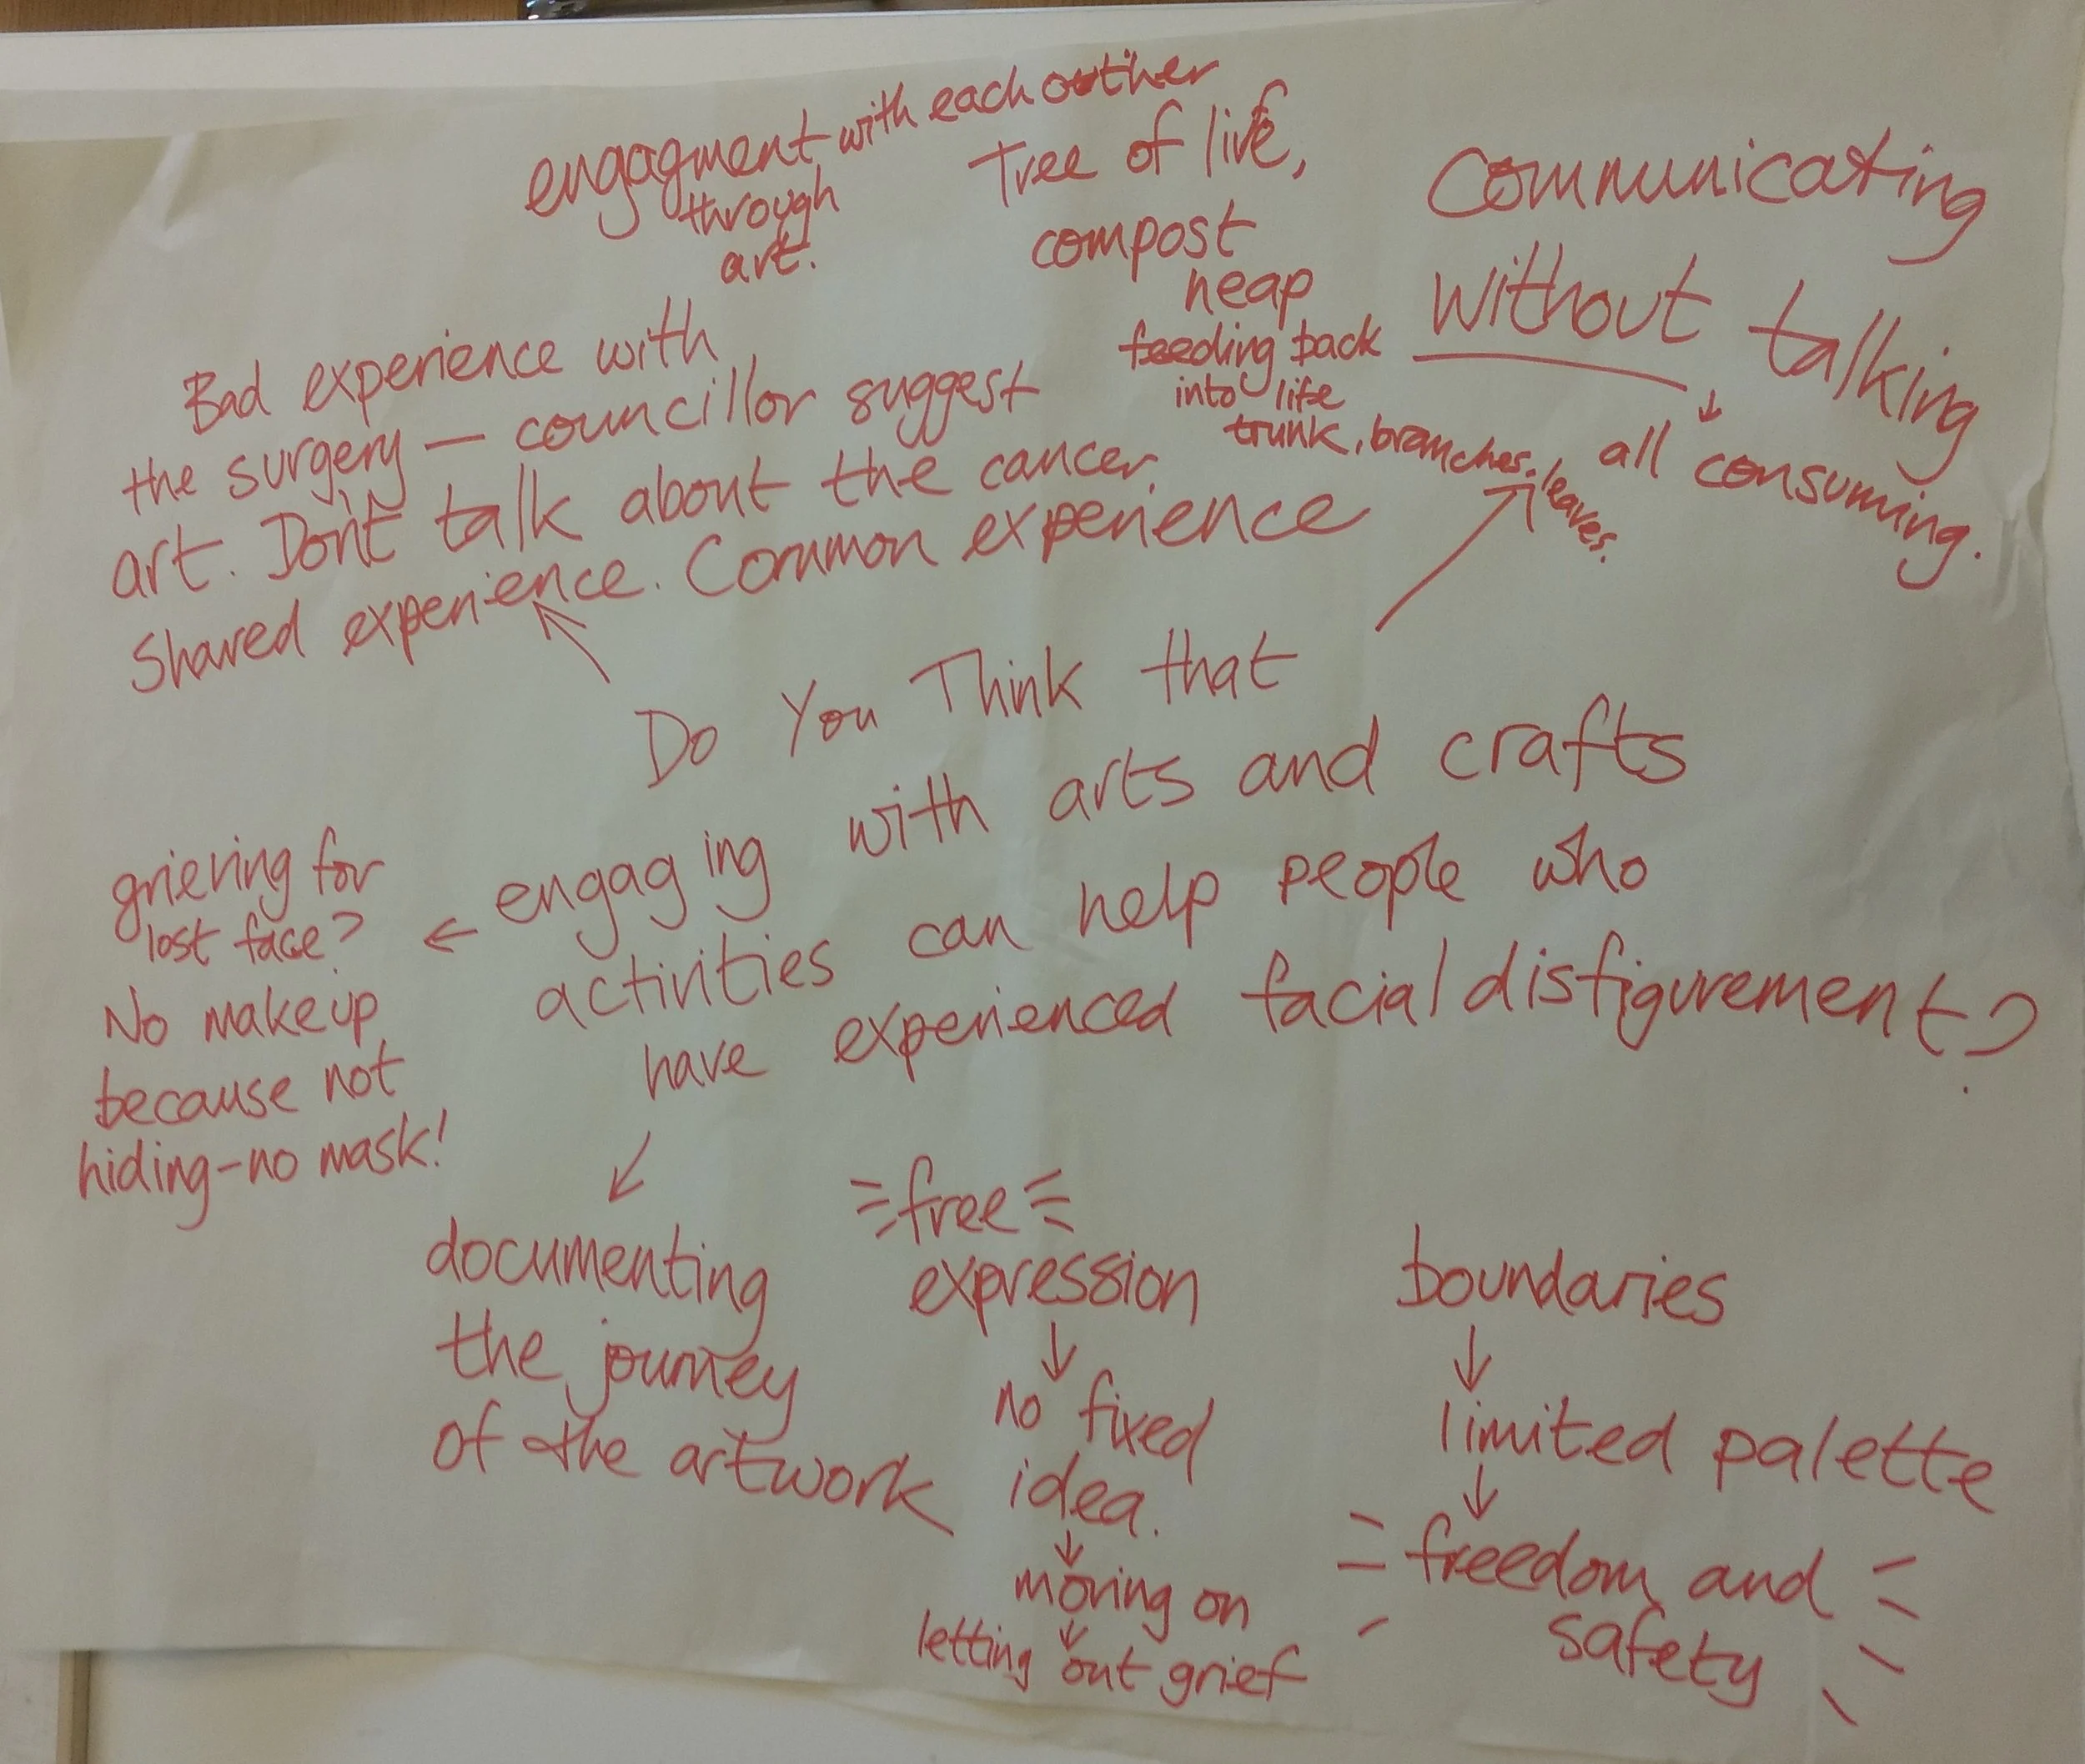 engagment with each outher
through
art.
Tree of life,
compost
heap
feeding back
into life
trunk, branches, leaves.
Communicating
without talking
all consuming.
Bad experience with
the surgery — councillor suggest
art. Don't talk about the cancer.
Shared experience. Common experience
Do You Think that
engaging with arts and crafts
activities can help people who
have experienced facial disfigurement?
grieving for
lost face?
No makeup
because not
hiding-no mask!
documenting
the journey
of the artwork
free
expression
no fixed
idea.
moving on
letting out grief
boundaries
limited palette
freedom and
safety